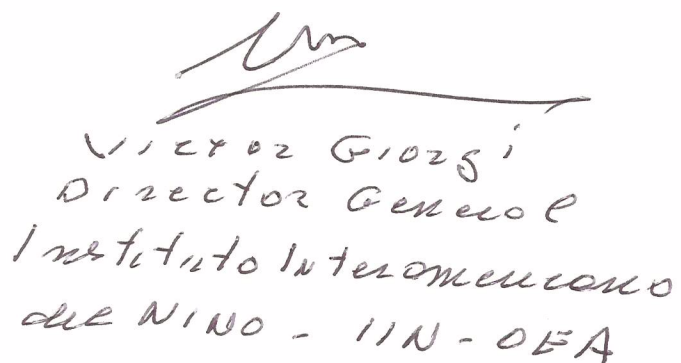 Victor Giorgi
Director General
Instituto Interamericano
del NINO - IIN - OEA